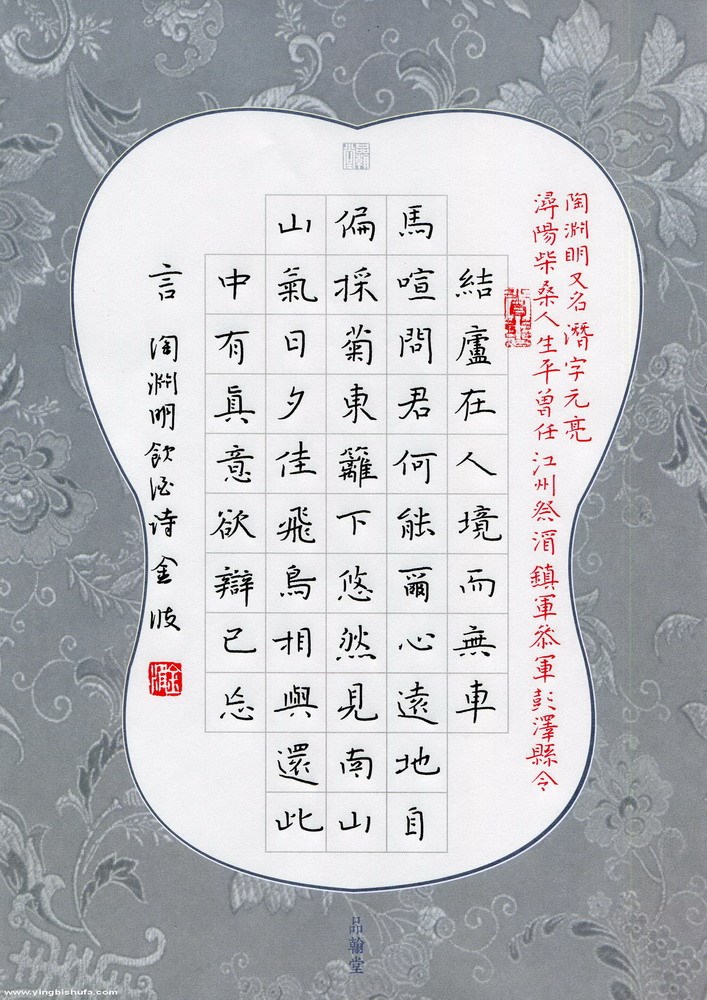 陶淵明又名潛字元亮
潯陽柴桑人生平曾任江州祭酒鎮軍叅軍彭澤縣令
結廬在人境而無車
馬喧問君何能爾心遠地自
偏採菊東籬下悠然見南山
山氣日夕佳飛鳥相與還此
中有眞意欲辯已忘
言 陶淵明飲酒诗 金波
品翰堂
www.yingbishufa.com